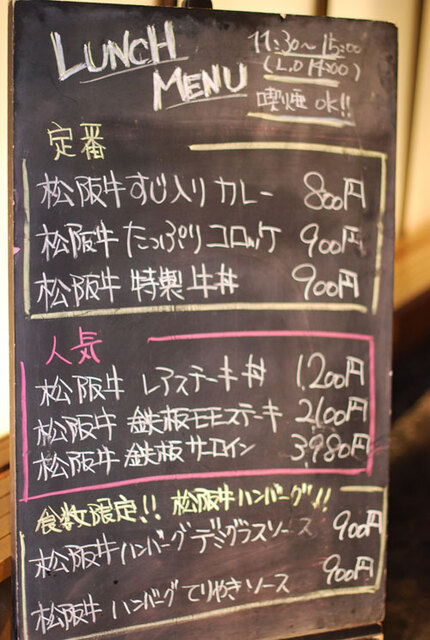 LUNCH
MENU
11:30〜15:00
(L.O 14:00)
喫煙 ok!!
定番
松阪牛すじ入りカレー 800円
松阪牛たっぷりコロッケ 900円
松阪牛 特製牛丼 900円
人気
松阪牛 レアステーキ丼 1,200円
松阪牛 鉄板モモステーキ 2,100円
松阪牛 鉄板サーロイン 3,980円
食数限定!! 松阪牛ハンバーグ!!
松阪牛ハンバーグデミグラスソース 900円
松阪牛 ハンバーグてりやきソース 900円